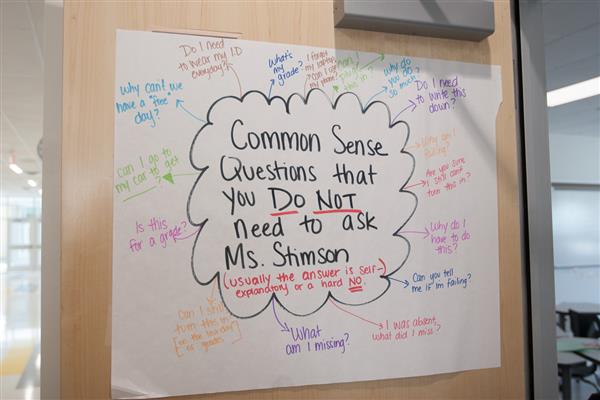 Do I need
to wear my I.D
everyday?
What's
my
grade?
I forgot
my laptop
can I use
my phone?
Can I
still
turn
this in?
why do
you do
so much?
Do I need
to write this
down?
why can't we
have a "free"
day?
Why am I
failing?
can I go to
my car to get
Are you sure
I still can't
turn this in?
Is this
for a grade?
Why do I
have to do
this?
Common Sense
Questions that
you Do NOT
need to ask
Ms. Stimson
(usually the answer is self-
explanatory or a hard NO.)
Can you tell
me if I'm failing?
Can I still
turn this in
[on the last day
of grades]
What
am I missing?
I was absent,
what did I miss?